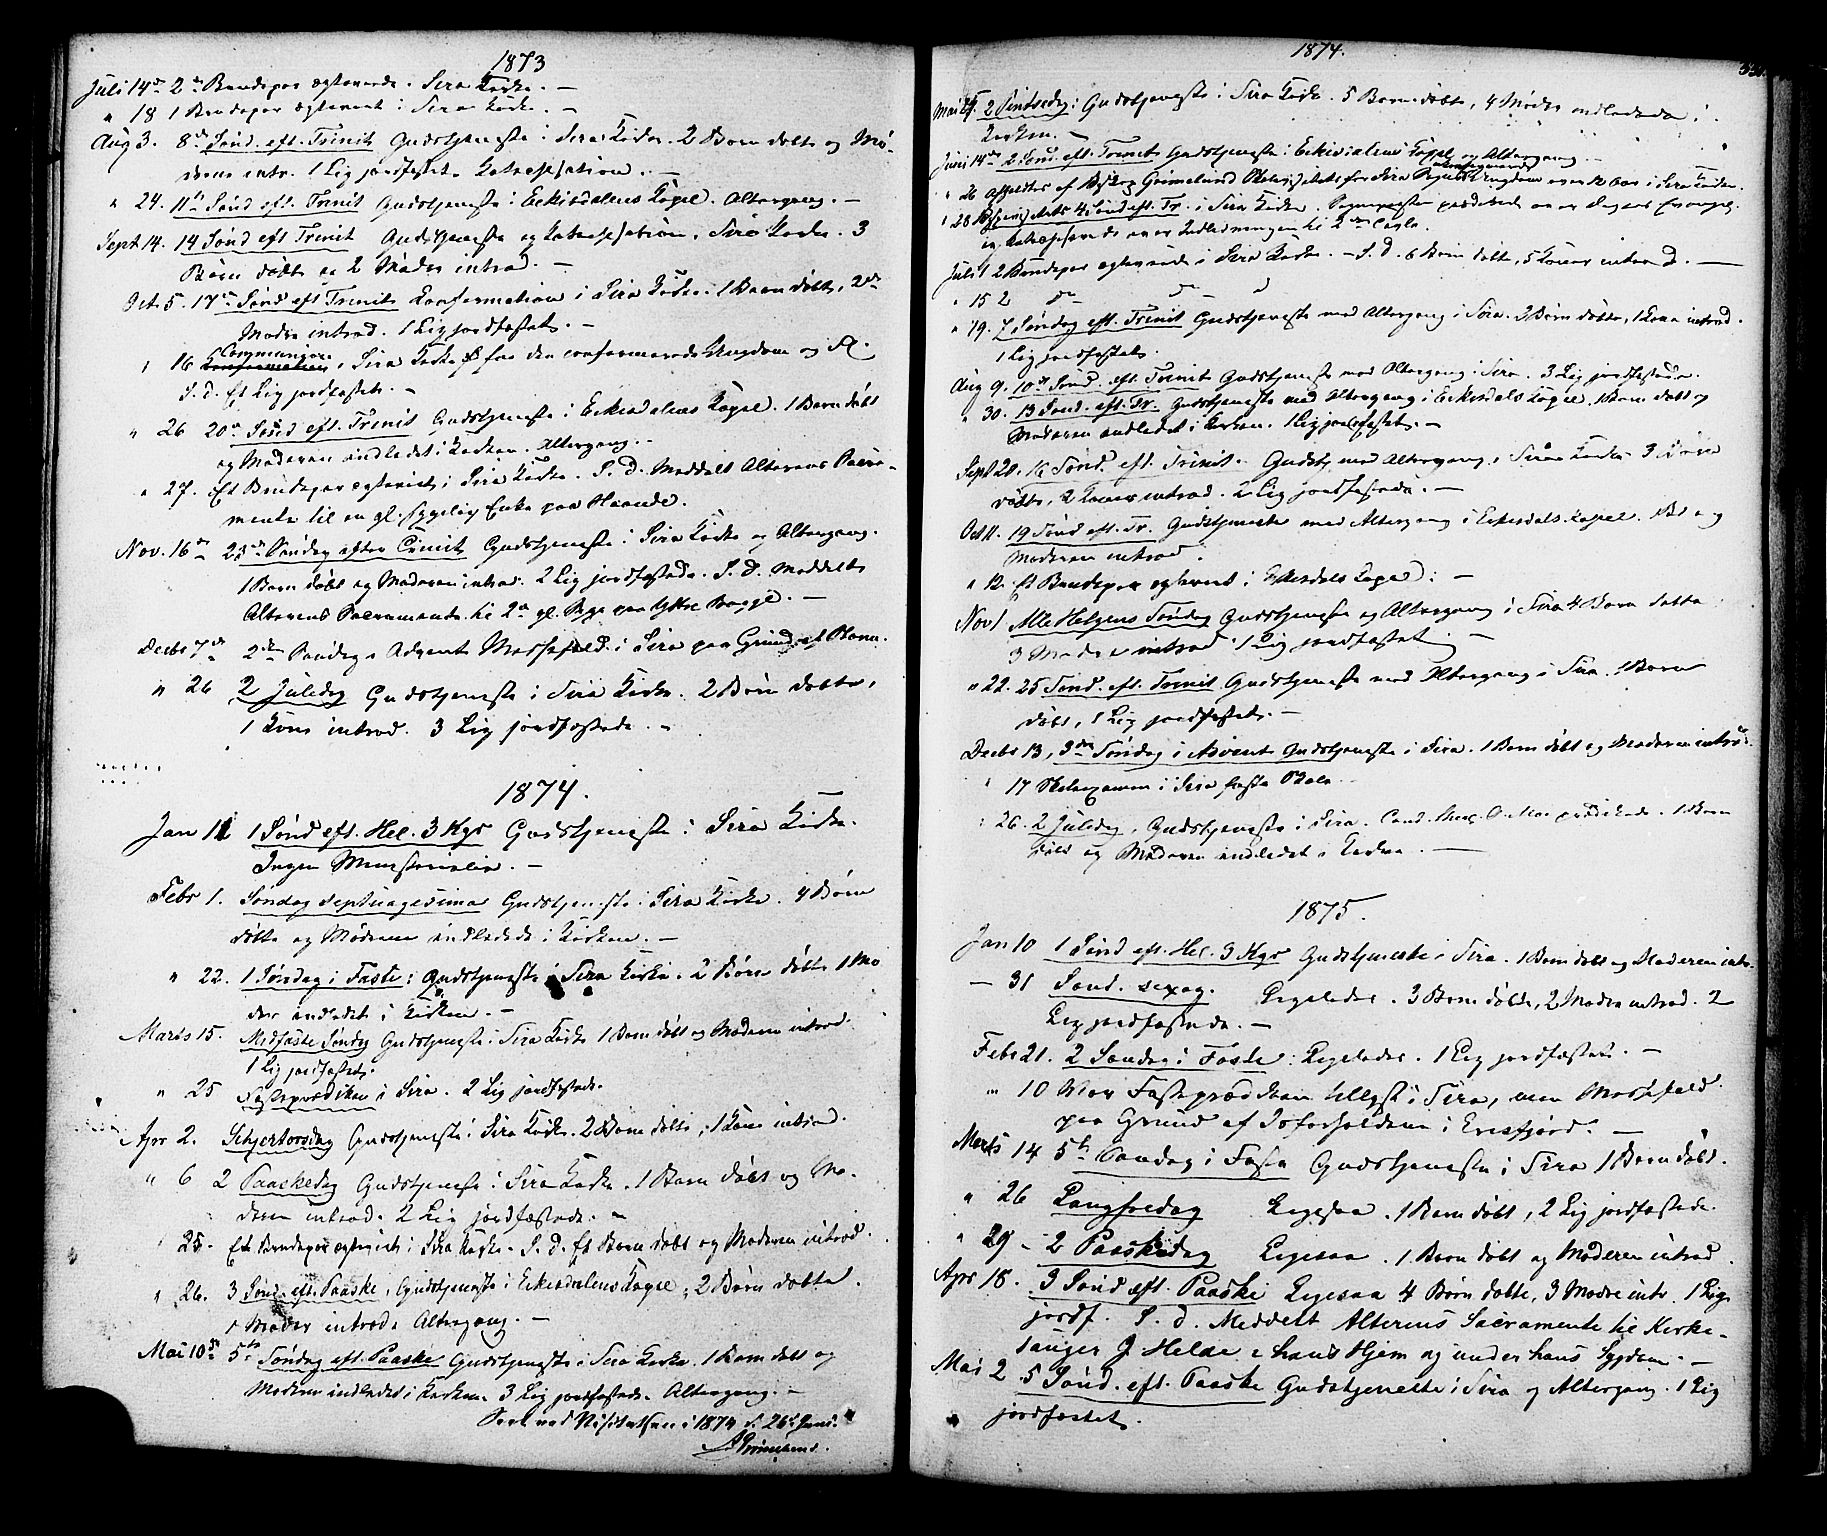 1873
Juli 14de 2de Brudepar ægteviede. Sira Kirke. —
" 18 1 Brudepar ægteviet i Sira Kirke. —
Aug 3. 8de Sønd. eft. Trinit Gudstjeneste i Sira Kirke. 2 Børn døbte og Mø-
drene intr. 1 Lig jordfæstet. Katechisation. —
" 24. 11te Sønd eft. Trinit Gudstjeneste i Eekisdalens Capel. Altergang. —
Sept 14. 14 Sønd eft Trinit Gudstjeneste og Katechisation, Sira Kirke. 3
Børn døbte og 2 Mødre introd. —
Oct. 5. 17de Sønd eft Trinit Confirmation i Sira Kirke. 1 Barn døbt, 2de
Mødre introd. 1 Lig jordfæstet. —
" 16 Communion i Sira Kirke for den confirmerede Ungdom og Fl.
S. d. Et Lig jordfæstet. —
" 26 20de Sønd eft. Trinit Gudstjeneste i Eekisdalens Capel. 1 Barn døbt
og Moderen indledet i Kirken. Altergang. —
" 27. Et Brudepar ægteviet i Sira Kirke. S. D. Meddelt Alterens Sacra-
mente til en gl. sygelig Enke paa Maande.
Nov. 16de 23de Søndag efter Trinit Gudstjeneste i Sira Kirke og Altergang.
1 Barn døbt og Moderen introd. 2 Lig jordfæstede. S. D. Meddelt
Alterens Sacramente til 2de gl. Syge paa Ytre Bogge. —
Decbr 7de 2den Søndag i Advent Messefald i Sira paa Grund af Storm.
" 26 2 Juledag Gudstjeneste i Sira Kirke. 2 Børn døbte,
1 Kone introd. 3 Lig jordfæstede. —
1874.
Jan 11 1 Sønd eft. Hel. 3 Kgr Gudstjeneste i Sira Kirke.
Ingen Ministerialia. —
Febr 1. Søndag septuagesima Gudstjeneste i Sira Kirke. 4 Børn
døbte og Mødrene indledede i Kirken. —
" 22. 1 Søndag i Faste: Gudstjeneste i Sira Kirke. 2 Børn døbte 1 Mo
der indledet i Kirken. —
Marts 15. Midfaste Søndag Gudstjeneste i Sira Kirke 1 Barn døbt og Moderen introd.
1 Lig jordfæstet.
" 25 Fasteprædiken i Sira. 2 Lig jordfæstede.
Apr 2. Skjertorsdag Gudstjeneste i Sira Kirke. 2 Børn døbte, 1 Kone introd
" 6 2 Paaskedag Gudstjeneste i Sira Kirke. 1 Barn døbt og Mo-
deren introd. 2 Lig jordfæstede. —
" 25. Et Brudepar ægteviet i Sira Kirke. S. d. Et Barn døbt og Moderen introd.
" 26. 3 Sønd. eft. Paaske, Gudstjeneste i Eekisdalens Capel, 2 Børn døbte.
1 Moder introd. Altergang. —
Mai 10de 5te Søndag eft. Paaske Gudstjeneste i Sira Kirke. 1 Barn døbt og
Moderen indledet i Kirken. 3 Lig jordfæstede. Altergang. —
Seet ved Visitatsen i 1874 d. 26de Juni.
AGrimelund.
1874.
Mai 25. 2 Pintsedag: Gudstjeneste i Sira Kirke. 5 Børn døbte, 4 Mødre indledede i
Kirken. —
Juni 14de 2 Sønd. eft. Trinit Gudstjeneste i Eekisdalens Capel og Altergang. —
" 26 afholdtes af Biskop Grimelund Visitats for Sira Sogns Ungdom over 12 Aar i Sira Kirke.
" 28 4 Sønd. eft. Tr. i Sira Kirke. Sognepresten prædikede over Dagens Evangel.
og Katechiserede over Indledningen til 2den Part.
Juli 1 2 Brudepar ægteviede i Sira Kirke. — S. d. 6 Børn døbte, 5 Koner introd. —
" 15 2 do do
" 19. 7 Søndag eft. Trinit Gudstjeneste med Altergang i Sira. 2 Børn døbte, 1 Kone introd.
1 Lig jordfæstet.
Aug 9. 10de Sønd. eft. Trinit Gudstjeneste med Altergang i Sira. 3 Lig jordfæstede.
" 30. 13 Sønd. eft. Tr. Gudstjeneste med Altergang i Eekisdals Capel. 1 Barn døbt og
Moderen indledet i Kirken. 1 Lig jordfæstet. —
Sept 20. 16 Sønd. eft. Trinit. Gudstj. med Altergang i Sira Kirke 3 Børn
døbte, 2 Koner introd. 2 Lig jordfæstede. —
Oct 11. 19 Sønd eft. Tr. Gudstjeneste med Altergang i Eekisdals Capel. 1 B. d og
Moderen introd.
" 12. Et Brudepar ægteviet i Eekisdals Capel. —
Nov 1 Alle Helgens Søndag Gudstjeneste og Altergang i Sira 4 Børn døbte
3 Mødre introd 1 Lig jordfæstet. —
" 22. 25 Sønd. eft. Trinit Gudstjeneste med Altergang i Sira. 1 Barn
døbt, 1 Lig jordfæstet. —
Decbr 13, 3de Søndag i Advent Gudstjeneste i Sira. 1 Barn døbt og Moderen introd.
" 17 Skoleexamen i Sira faste Skole.
" 26. 2 Juledag, Gudstjeneste i Sira. Cand. prædikede. 1 Barn
døbt og Moderen indledet i Kirken. —
1875.
Jan 10 1 Sønd eft. Hel. 3 Kgr Gudstjeneste i Sira. 1 Barn døbt og Moderen intr.
— 31 Sønd. sexag. Ligeledes. 3 Børn døbte, 2 Mødre introd. 2
Lig jordfæstede. —
Febr 21. 2 Søndag i Faste: Ligeledes. 1 Lig jordfæstet. —
" 10 Var Fasteprædiken tillyst i Sira, men Messefald
paa Grund af Isforholdene i Erisfjord. —
Marts 14 5te Søndag i Faste Gudstjeneste i Sira 1 Barn døbt.
" 26 Langfredag Ligesaa. 1 Barn døbt, 2 Lig jordfæstede.
" 29 - 2 Paaskedag Ligesaa. 1 Barn døbt og Moderen introd.
Apr 18. 3 Sønd eft. Paaske Ligesaa 4 Børn døbte, 3 Mødre intr. 1 Lig
jordf. S. d. Meddelt Alterens Sacramente til Kirke-
sanger J Helde i hans Hjem og under hans Sygdom. —
Mai 2 5 Sønd. eft. Paaske Gudstjeneste i Sira og Altergang. 1 Lig
jordfæstet.